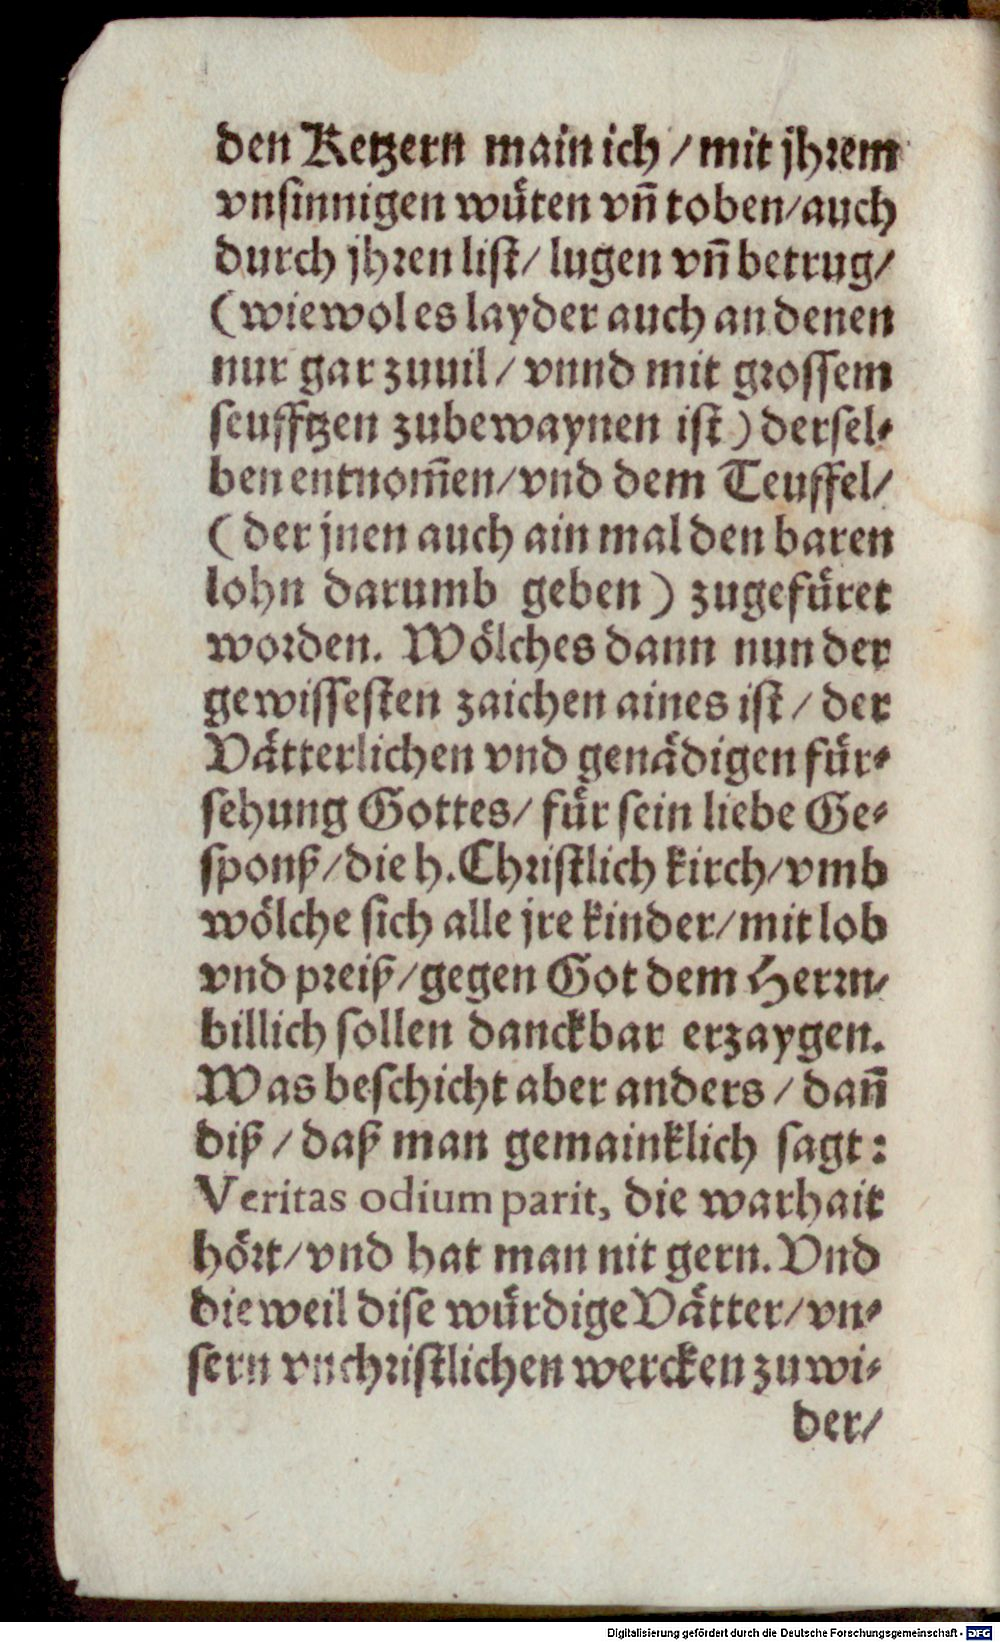 den Ketzern main ich / mit jhrem
vnsinnigen wuͤten vñ toben / auch
durch jhren list / lugen vñ betrug /
( wiewol es layder auch an denen
nur gar zuuil / vnnd mit grossem
seufftzen zubewaynen ist ) dersel⸗
ben entnom̃en / vnd dem Teuffel /
( der jnen auch ain mal den baren
lohn darumb geben ) zugefuͤret
worden. Woͤlches dann nun der
gewissesten zaichen aines ist / der
Vaͤtterlichen vnd genaͤdigen fuͤr⸗
sehung Gottes / fuͤr sein liebe Ge⸗
sponß / die h. Christlich kirch / vmb
woͤlche sich alle jre kinder / mit lob
vnd preiß / gegen Got dem Herrn /
billich sollen danckbar erzaygen.
Was beschicht aber anders / dañ
diß / daß man gemainklich sagt :
Veritas odium parit, die warhait
hoͤrt / vnd hat man nit gern. Vnd
dieweil dise wuͤrdige Vaͤtter / vn⸗
sern vnchristlichen wercken zuwi⸗
der /
Digitalisierung gefördert durch die Deutsche Forschungsgemeinschaft - DFG